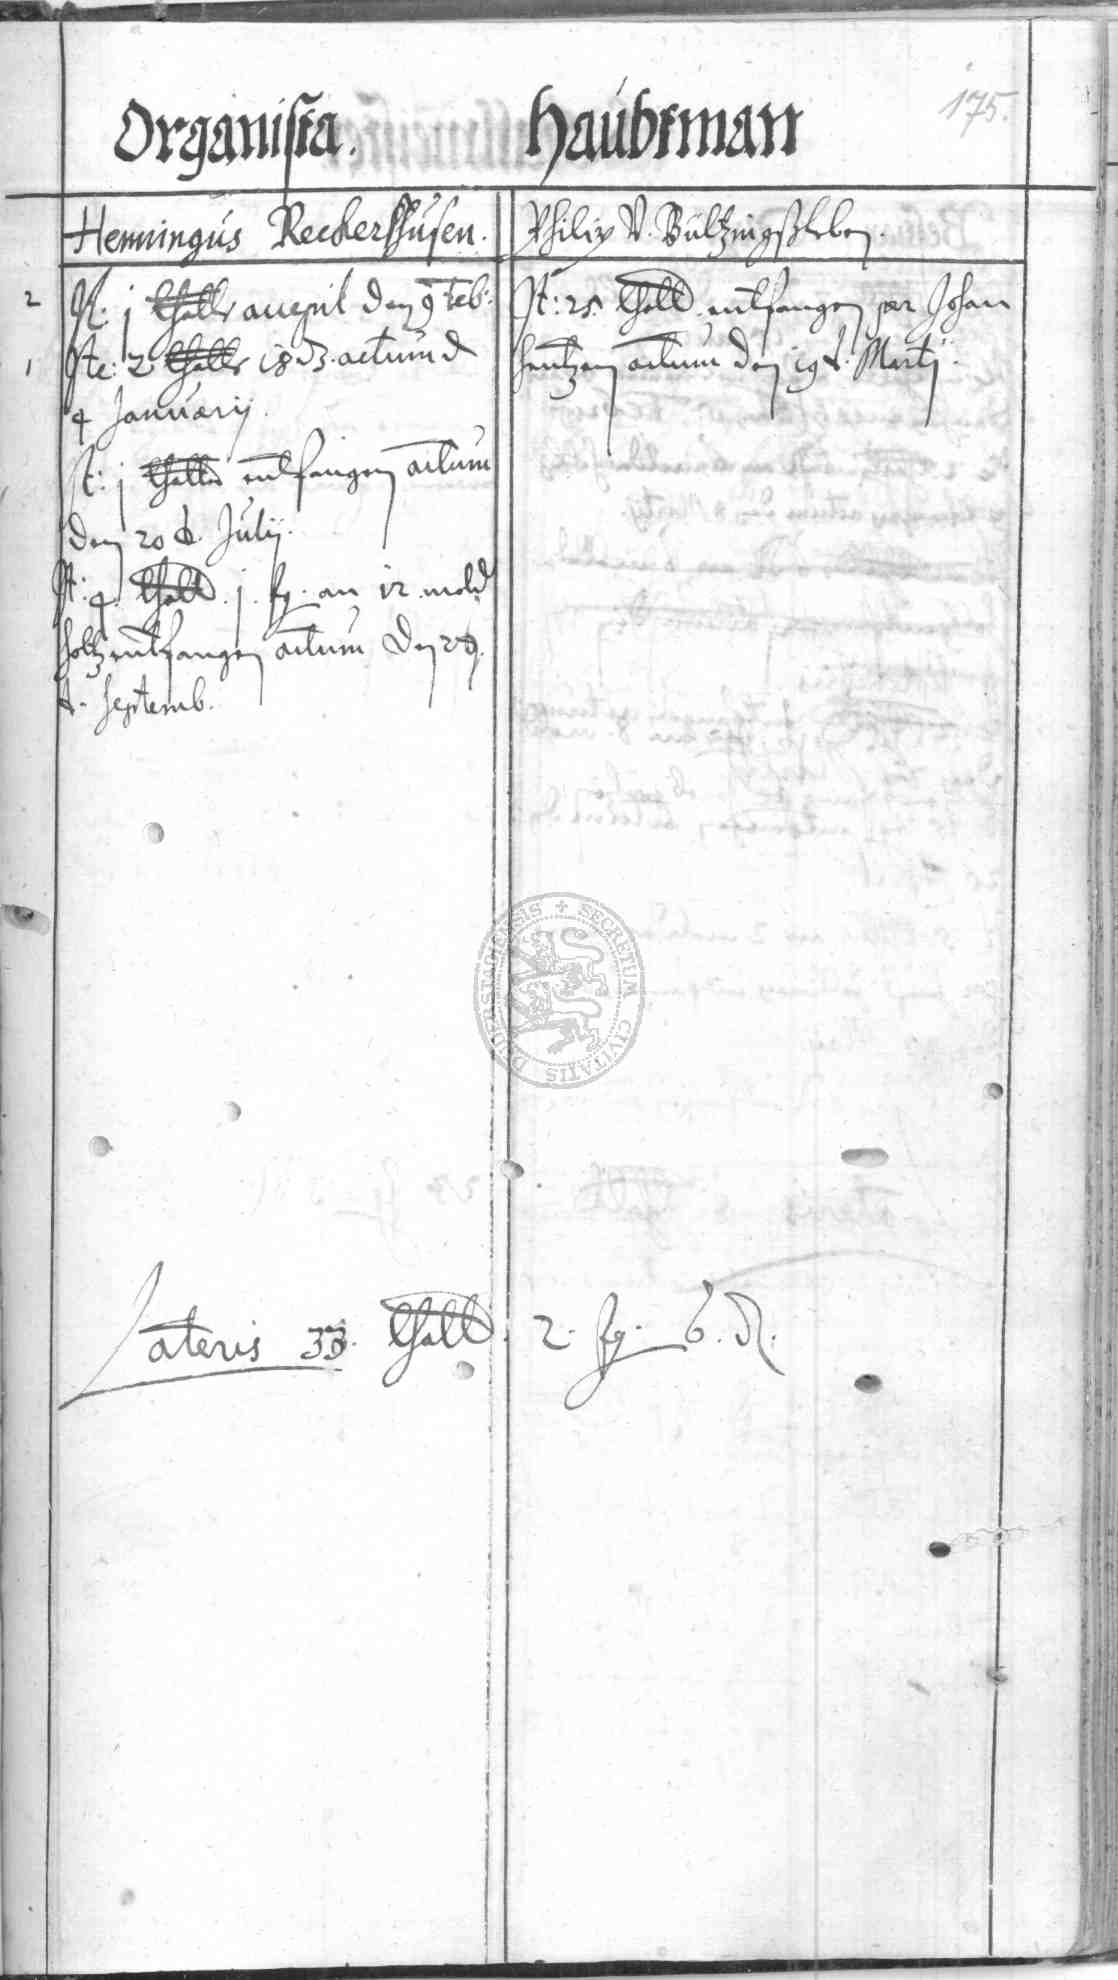 175.
Organista.
Henningus Reckershusen.
2 It: j thaller den 9 Feb:
1 Ite: 2 thaller 18 actum d
4 Januarij.
It: j thaller entfangen actum
den 20 t. Julij.
It: 4 thall. j. fg. an 12 mold
holtz entfangen actum den 28
t. Septemb.
Haubtman
Philip V. Bültzingßleben.
It: 25 thall entfangen per Johan
Hentzen actum den 19 t. Martij.
Lateris 33. thall. 2. fg. 6. d.
SECRETUM CIVITATIS DUDERSTADIENSIS